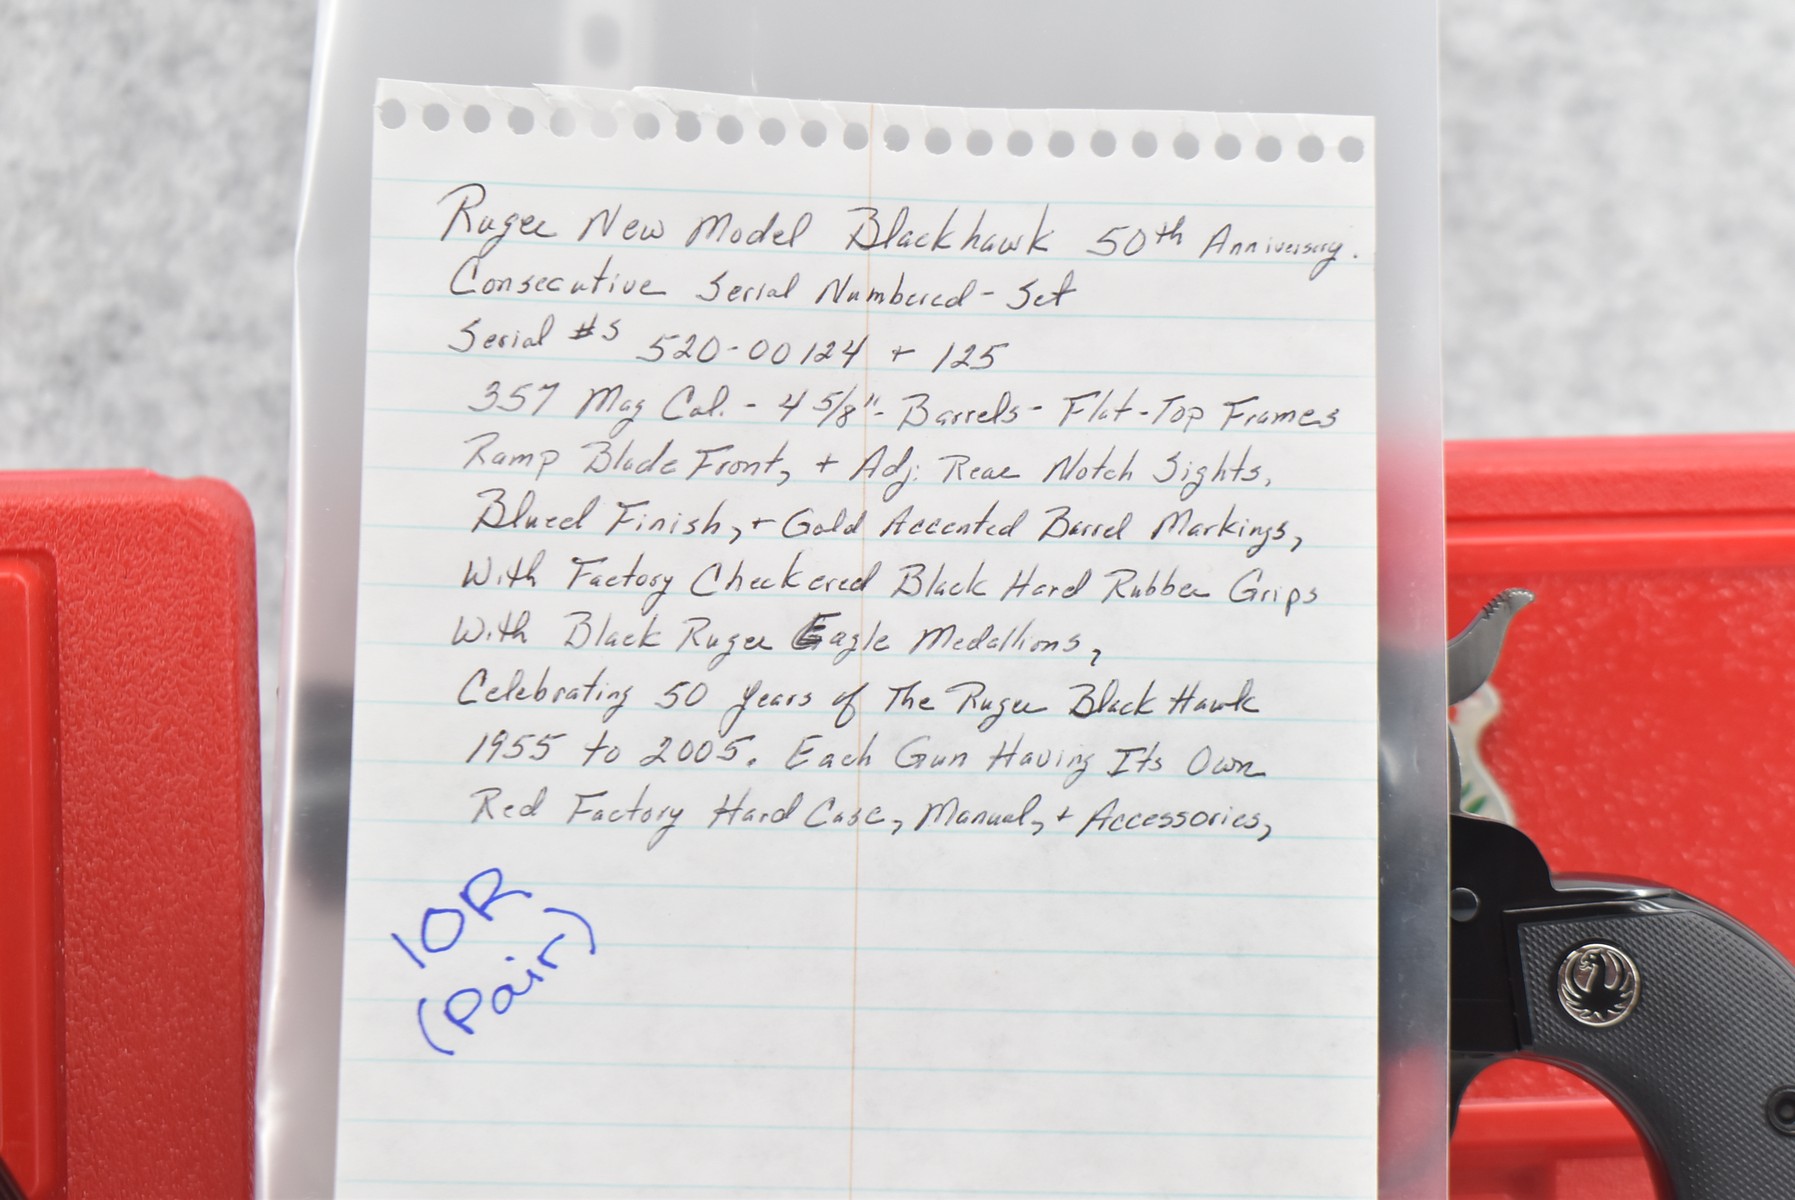 Ruger New Model Blackhawk 50th Anniversary.
Consecutive Serial Numbered - Set
Serial #s 520-00124 + 125
357 Mag Cal. - 4 5/8" - Barrels - Flat-Top Frames
Ramp Blade Front, + Adj. Rear Notch Sights,
Blued Finish, + Gold Accented Barrel Markings,
With Factory Checkered Black Hard Rubber Grips
With Black Ruger Eagle Medallions,
Celebrating 50 years of The Ruger Black Hawk
1955 to 2005. Each Gun Having Its Own
Red Factory Hard Case, Manual, + Accessories,
10R
(Pair)